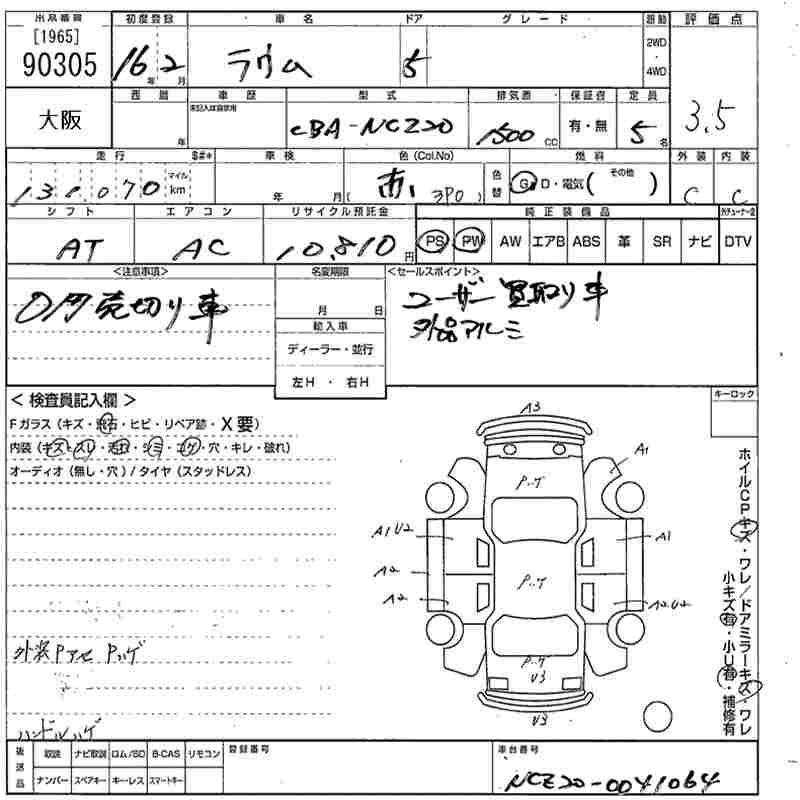 出品番号 初度登録 車名 ドア グレード 駆動 評価点
[1965]
90305 16年 2月 ラウム 5 2WD・4WD 3.5
大阪 西暦 年 車歴 未記入は自家用 型式 CBA-NCZ20 排気量 1500 CC 保証書 有・無 定員 5名
走行 $#* 車検 色(Col.No) 燃料 外装 内装
131,070 マイル km 年 月 赤 (3P0) 色替 G・D・電気(その他) C C
シフト エアコン リサイクル預託金 純正装備品 外チューナー含
AT AC 10,810円 PS PW AW エアB ABS 革 SR ナビ DTV
<注意事項> 名変期限 <セールスポイント>
売切り車 月 日 ユーザー買取り車
輸入車 外品アルミ
ディーラー・並行
左H・右H
<検査員記入欄> キーロック
Fガラス(キズ・飛石・ヒビ・リペア跡・X要)
内装(キズ・スレ・汚れ・シミ・コゲ・穴・キレ・破れ)
オーディオ(無し・穴)/タイヤ(スタッドレス)
A3
A1
Pハゲ
A1U2 A1
A2
A2 Pハゲ A2U2
Pハゲ
U3
U3
ホイルCPキズ・ワレ/ドアミラーキズ・ワレ
小キズ有・小U有・補修有
外装Pアセ Pハゲ
ハンドルハゲ
後送品 取説 ナビ取説 ロム/SD B-CAS リモコン 登録番号 車台番号
ナンバー スペアキー キーレス スマートキー NCZ20-0041064